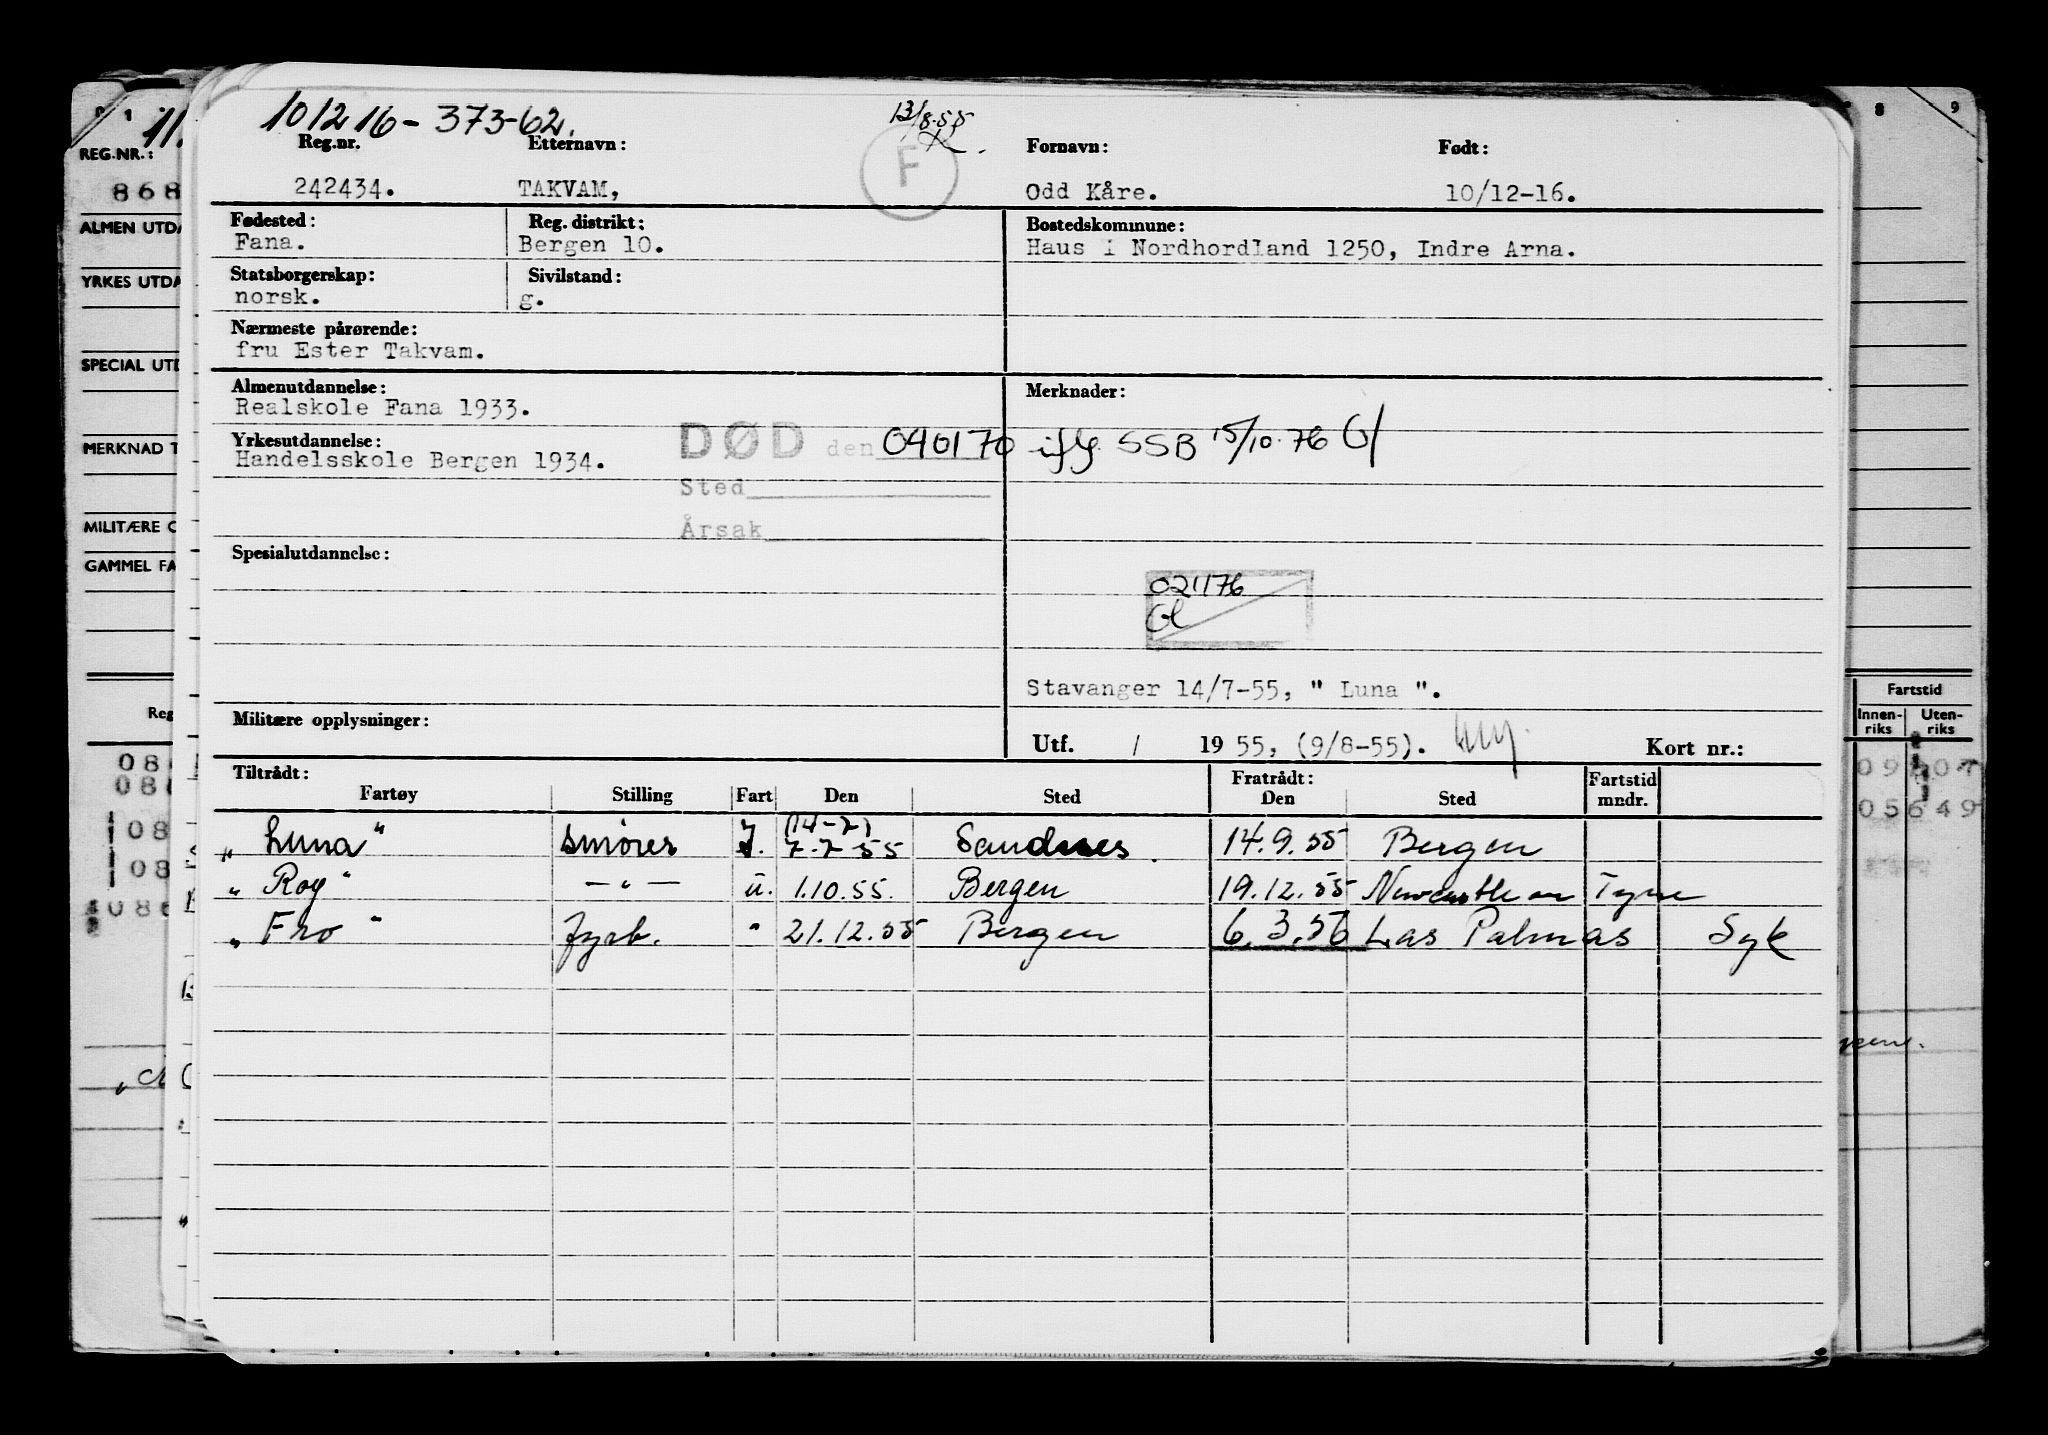 101216-373-62.
13/8-55
Reg.nr. Etternavn: F Fornavn: Født:
242434. TAKVAM, Odd Kåre. 10/12-16.
Fødested: Reg. distrikt: Bostedskommune:
Fana. Bergen 10. Haus i Nordhordland 1250, Indre Arna.
Statsborgerskap: Sivilstand:
norsk. g.
Nærmeste pårørende:
fru Ester Takvam.
Almenutdannelse: Merknader:
Realskole Fana 1933.
Yrkesutdannelse: DØD den 040170 iflg. SSB 15/10.76 Gl
Handelsskole Bergen 1934.
Sted
Årsak
Spesialutdannelse:
021176
Gl
Stavanger 14/7-55, " Luna ".
Militære opplysninger:
Utf. / 19 55, (9/8-55). Kort nr.:
Tiltrådt: Fratrådt: Fartstid
Fartøy Stilling Fart Den Sted Den Sted mndr.
(14-7)
" Luna " smører 7-7-55 Sandnes. 14.9.55 Bergen
" Roy " — " — u. 1.10.55. Bergen 19.12.55 Newcastle on Tyne
" Fro " fyrb. " 21.12.55 Bergen 6.3.56 Las Palmas Syk
REG.NR.:
868
ALMEN UTDA
YRKES UTDA
SPECIAL UTD
MERKNAD T
MILITÆRE O
GAMMEL FA
Reg
08
08
08
08
086
8 9
Fartstid
Innen-riks Uten-riks
05649